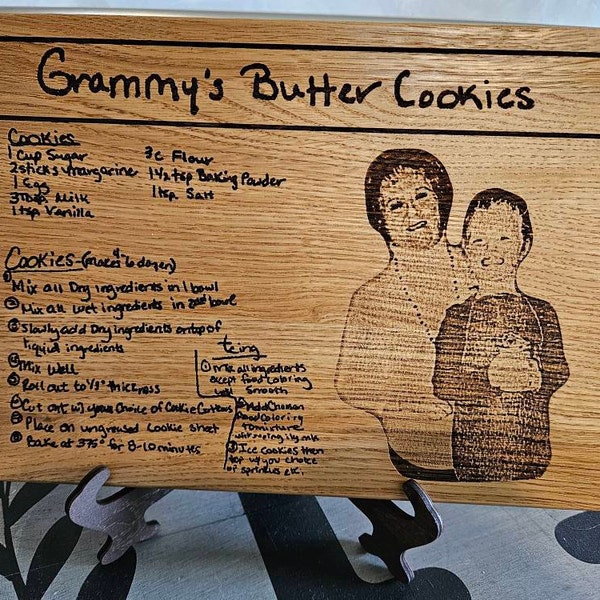 Grammy's Butter Cookies
Cookies
1 Cup Sugar
2 sticks margarine
1 Egg
3 Tbsp. Milk
1 tsp Vanilla
3c Flour
1 1/2 tsp Baking Powder
1 tsp Salt
Cookies - (makes 4 to 6 dozen)
① Mix all Dry ingredients in 1 bowl
② Mix all Wet ingredients in 2nd bowl
③ Slowly add Dry ingredients on top of
liquid ingredients
④ Mix Well
⑤ Roll out to 1/3" thickness
⑥ Cut out w/ your Choice of Cookie Cutters
⑦ Place on ungreased Cookie sheet
⑧ Bake at 375° for 8-10 minutes
Icing
① Mix all ingredients
except food Coloring
until Smooth
② Add Chosen
Food Coloring
to mixture
③ Ice Cookies then
top w/ you choice
of sprinkles etc.